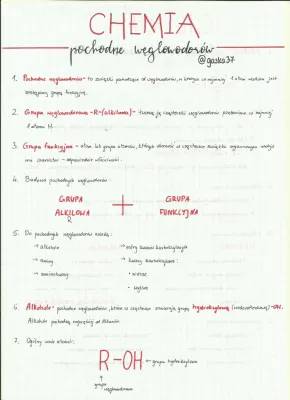 CHEMIA
pochodne węglowodorów
@gaska37
1. Pochodne węglowodorów - to związki pochodzące od węglowodorów, w których co najmniej 1 atom wodoru jest
zastąpiony grupą funkcyjną.
2. Grupa węglowodorowa -R- (alkilowa) - tworzą ją cząsteczki węglowodorów pozbawione co najmniej
1 atomu H.
3. Grupa funkcyjna - atom lub grupa atomów, która w cząsteczce związku organicznego nadaje
mu charakter - odpowiednie właściwości.
4. Budowa pochodnych węglowodorów:
GRUPA ALKILOWA
R
+
GRUPA FUNKCYJNA
5. Do pochodnych węglowodorów należą:
→ alkohole
→ aminy
→ aminokwasy
→ estry kwasów karboksylowych
→ kwasy karboksylowe:
• niższe
• wyższe
6. Alkohole - pochodne węglowodorów, które w cząsteczce zawierają grupę hydroksylową (wodorotlenową) -OH.
Alkohole pochodzą najczęściej od alkanów.
7. Ogólny wzór alkoholi:
R-OH ← grupa hydroksylowa
↑
grupa
węglowodorowa